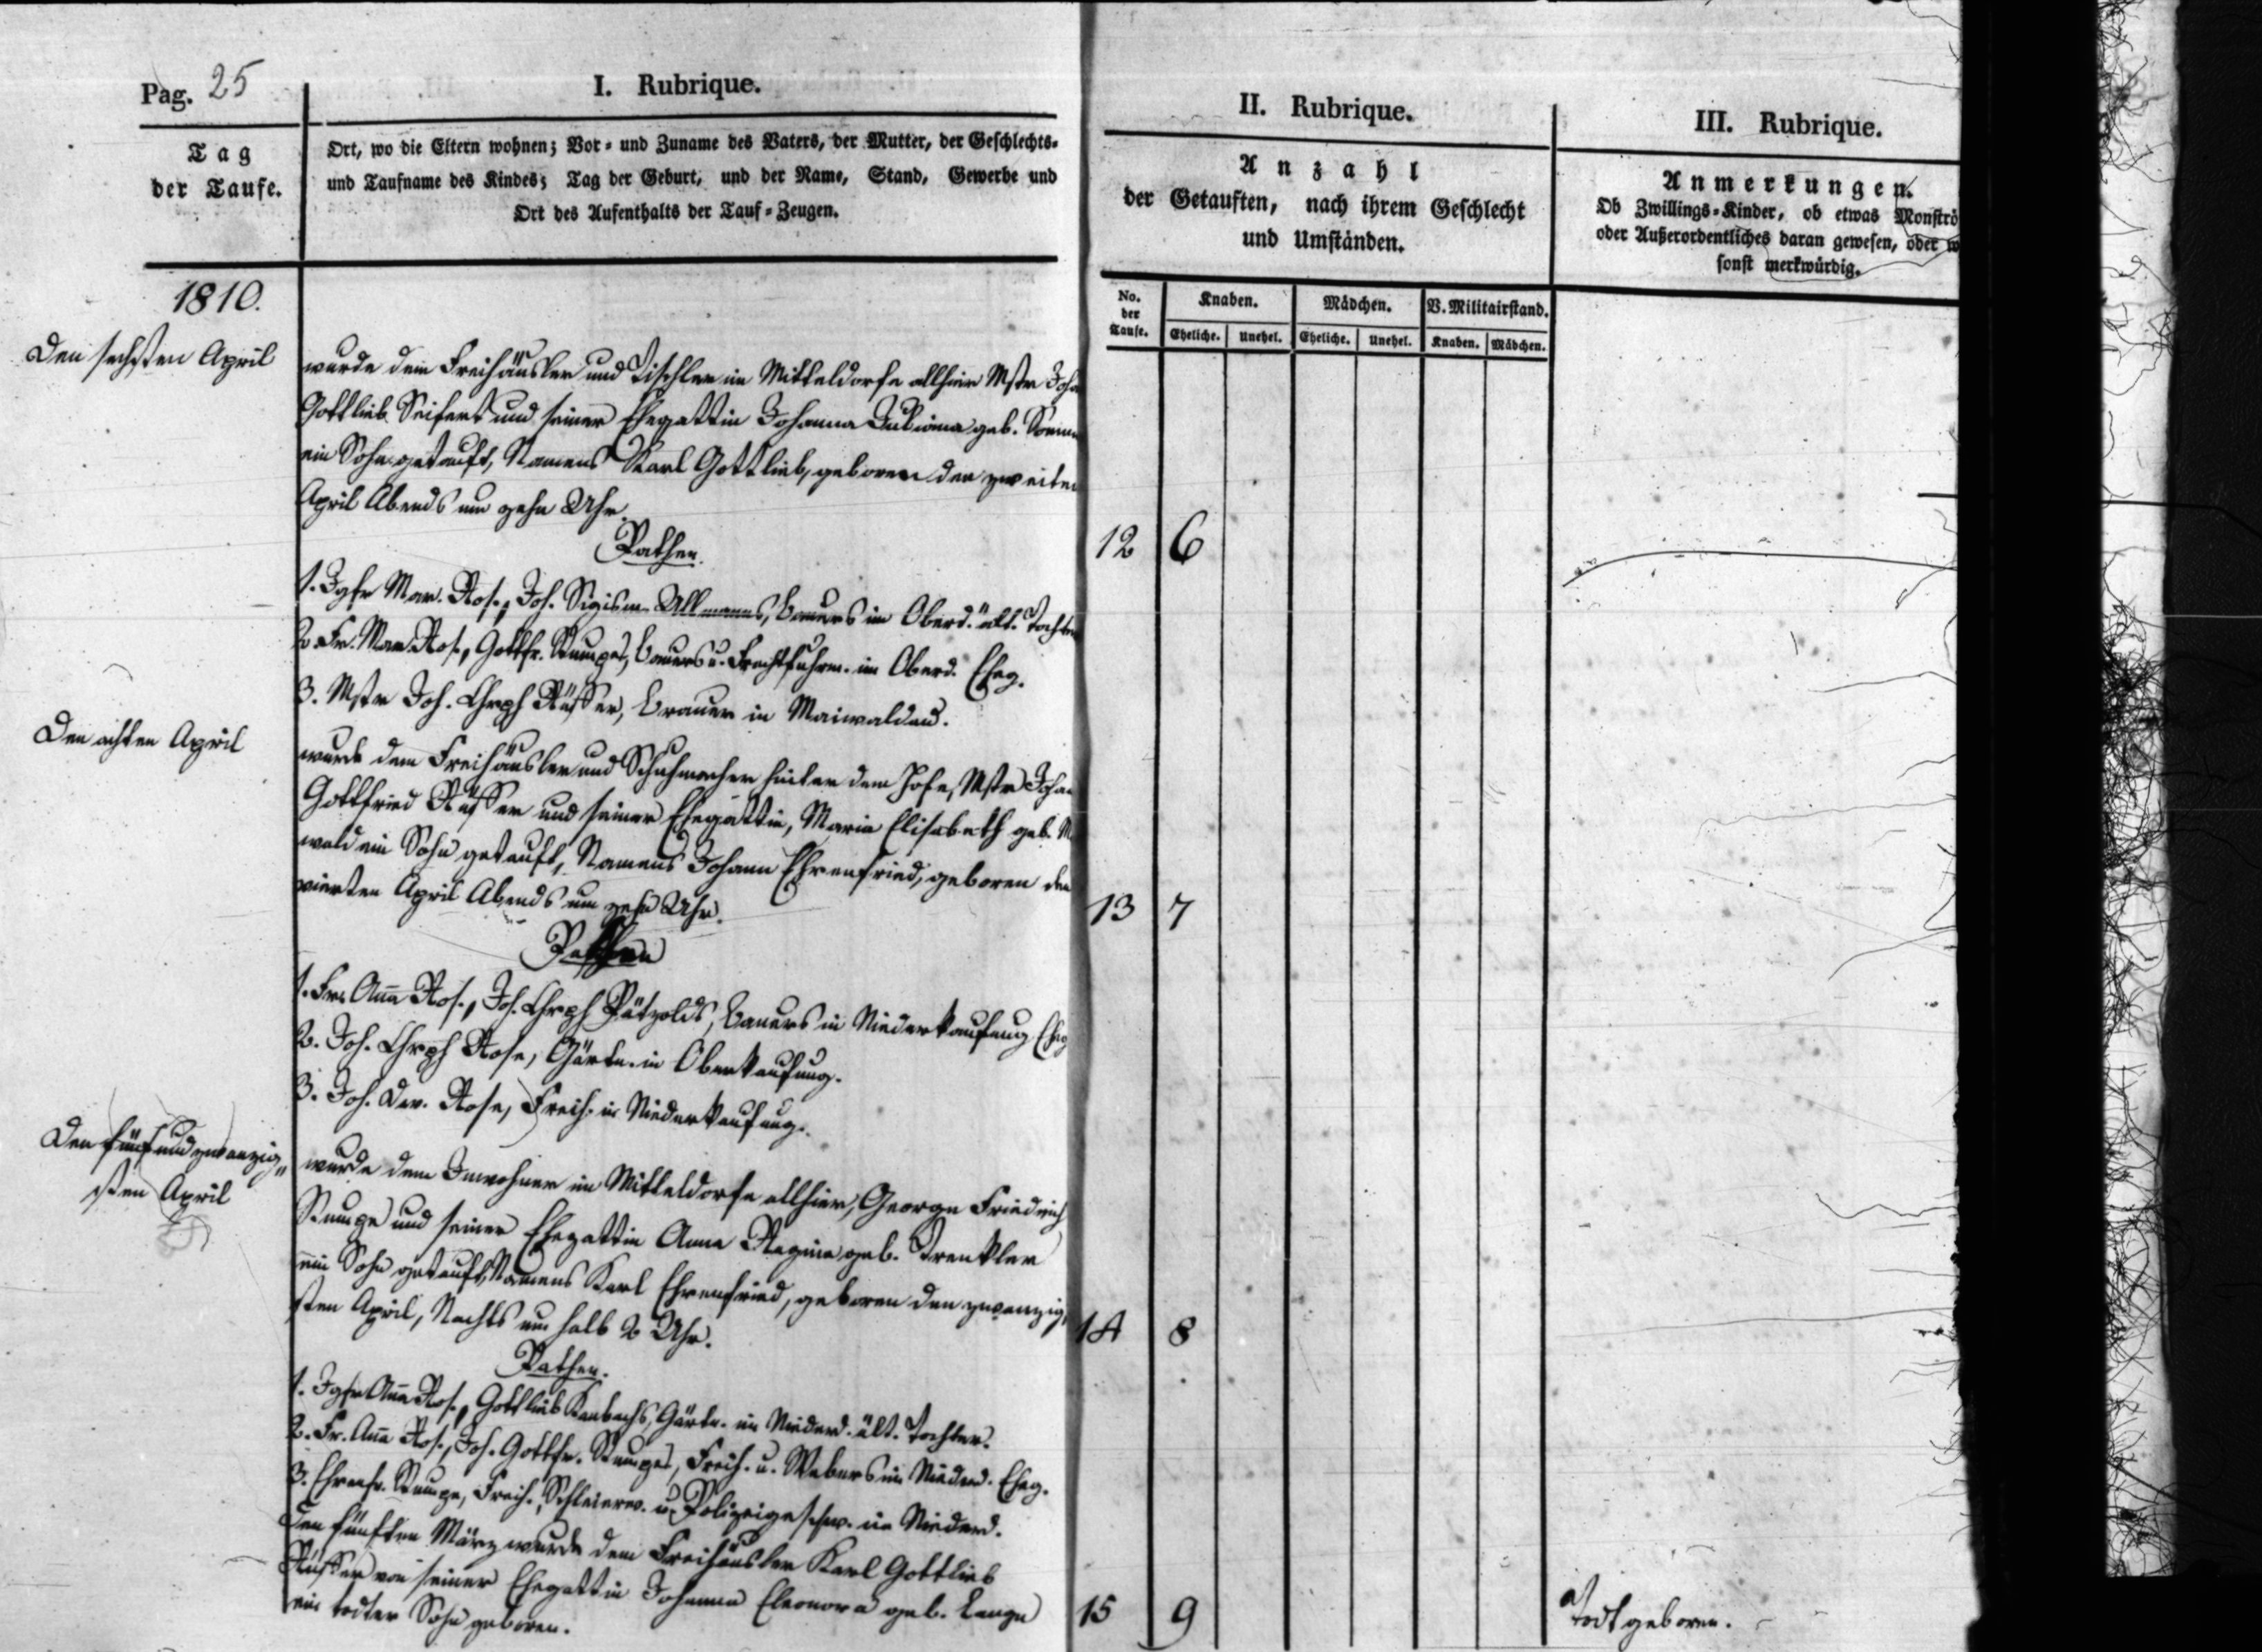 Pag. 25
I. Rubrique.
II. Rubrique.
III. Rubrique.
Tag
der Taufe.
Ort, wo die Eltern wohnen; Vor- und Zuname des Vaters, der Mutter, der Geschlechts-
und Taufname des Kindes; Tag der Geburt, und der Name, Stand, Gewerbe und
Ort des Aufenthalts der Tauf-Zeugen.
Anzahl
der Getauften, nach ihrem Geschlecht
und Umständen.
Anmerkungen.
Ob Zwillings-Kinder, ob etwas Monströ
oder Außerordentliches daran gewesen, oder w
sonst merkwürdig.
No. der Taufe.
Knaben.
Mädchen.
V. Militairstand.
Eheliche. Unehel. Eheliche. Unehel. Knaben. Mädchen.
1810.
Den sechsten April
wurde dem Freihäusler und Tischler im Mitteldorfe allhier Mstr Joha
Gottlieb Seifert und seiner Ehegattin Johanna Juliana geb.
ein Sohn getauft, Namens Karl Gottlieb, geboren den zweiten
April Abends um zehn Uhr.
Pathen.
12 6
1. Jgfr Mar. Ros., Joh. Sigism. Ullmanns, Bauers im Oberd. ält. Tochter
2. Fr. Mar. Ros., Gottfr. Stumpes, Bauers u. Frachtfuhrm. im Oberd. Eheg.
3. Mstr Joh. Chrph Rüffer, Brauer in Maiwaldau.
Den achten April
wurde dem Freihäusler und Schuhmacher hinter dem Hofe, Mstr Johan
Gottfried Rüffer und seiner Ehegattin, Maria Elisabeth geb.
wald ein Sohn getauft, Namens Johann Ehrenfried, geboren den
vierten April Abends um zehn Uhr.
13 7
Pathen
1. Fr. Anna Ros., Joh. Chrph Pätzolds, Bauers in Niederkaufung Eheg
2. Joh. Chrph Rose, Gärtn. in Oberkaufung.
3. Joh. Dav. Rose, Freih. in Niederkaufung.
Den fünfundzwanzig-
sten April
wurde dem Inwohner im Mitteldorfe allhier, George Friedrich
Stumpe und seiner Ehegattin Anna Regina geb. Trenkler
ein Sohn getauft, Namens Karl Ehrenfried, geboren den zwanzig-
sten April, Nachts um halb 2 Uhr.
14 8
Pathen.
1. Jgfr Anna Ros., Gottlieb Gärtn. im Niederd. ält. Tochter.
2. Fr. Anna Ros., Joh. Gottfr. Stumpes, Freih. u. Webers im Niederd. Eheg.
3. Ehrenfr. Stumpe, Freih., Schleierw. u. Polizeigeschw. im Niederd.
Den fünften März wurde dem Freihäusler Karl Gottlieb
Rüffer von seiner Ehegattin Johanna Eleonora geb. Lange
ein todter Sohn geboren.
15 9
Todtgeboren.